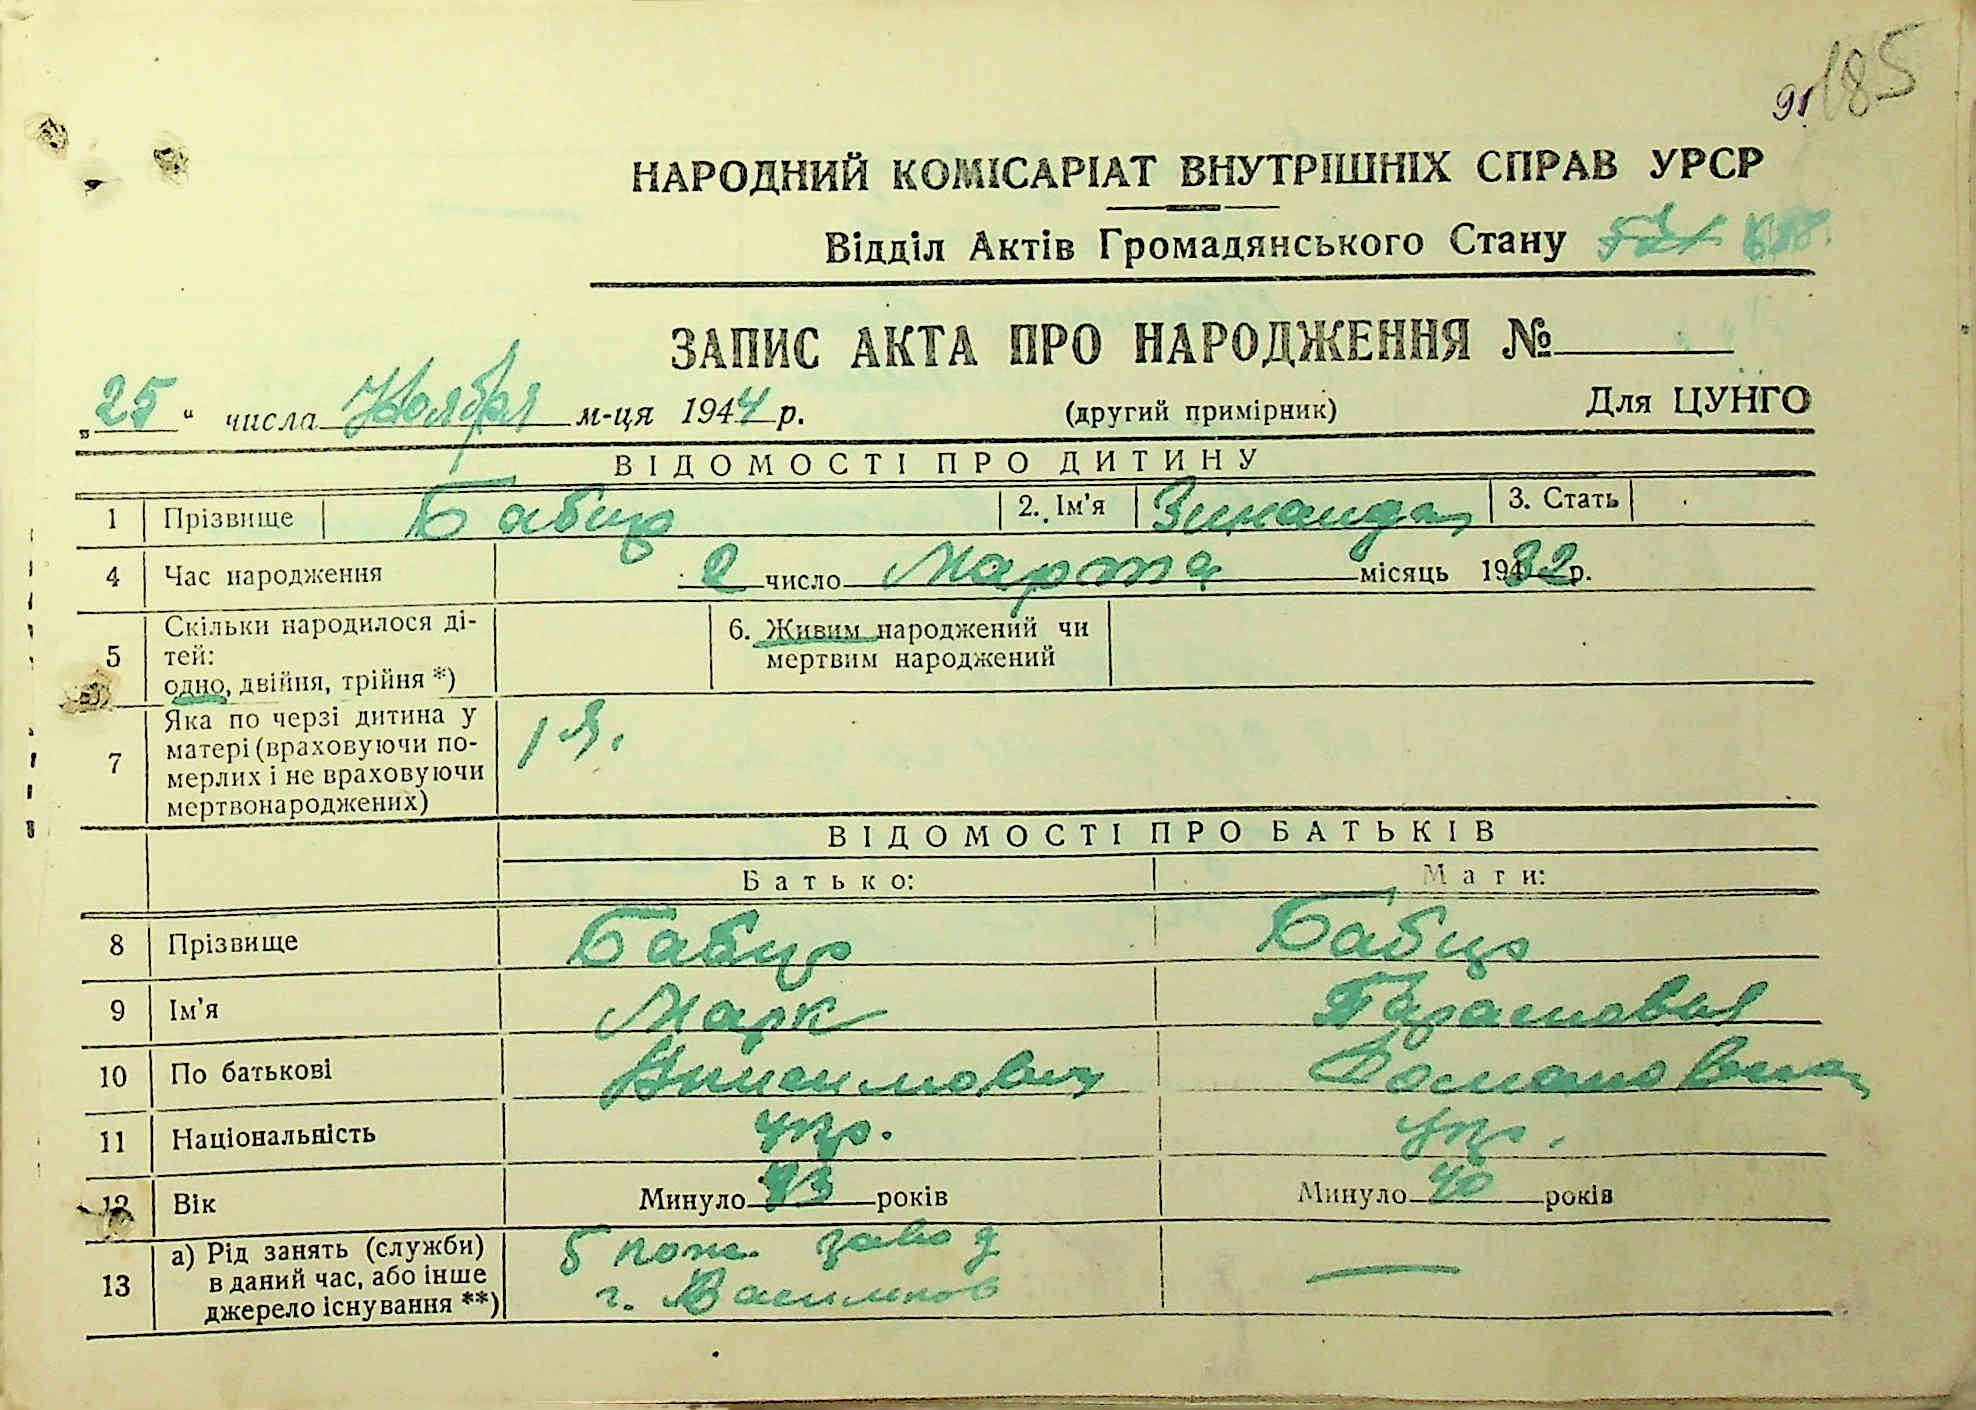 91 185
НАРОДНИЙ КОМІСАРІАТ ВНУТРІШНІХ СПРАВ УРСР
Відділ Актів Громадянського Стану
ЗАПИС АКТА ПРО НАРОДЖЕННЯ №
„25“ числа Ноября м-ця 1944 р. (другий примірник) Для ЦУНГО
ВІДОМОСТІ ПРО ДИТИНУ
1 Прізвище Бабир 2. Ім'я Зинаида 3. Стать
4 Час народження 2 число Марта місяць 1932 р.
5 Скільки народилося ді-
тей:
одно, двійня, трійня *)
6. Живим народжений чи
мертвим народжений
7 Яка по черзі дитина у
матері (враховуючи по-
мерлих і не враховуючи
мертвонароджених)
1 я.
ВІДОМОСТІ ПРО БАТЬКІВ
Батько: Мати:
8 Прізвище Бабир Бабир
9 Ім'я Марк
10 По батькові Романовна
11 Національність укр. укр.
12 Вік Минуло 43 років Минуло 40 років
13 а) Рід занять (служби)
в даний час, або інше
джерело існування **)
завод
г. Васильков —